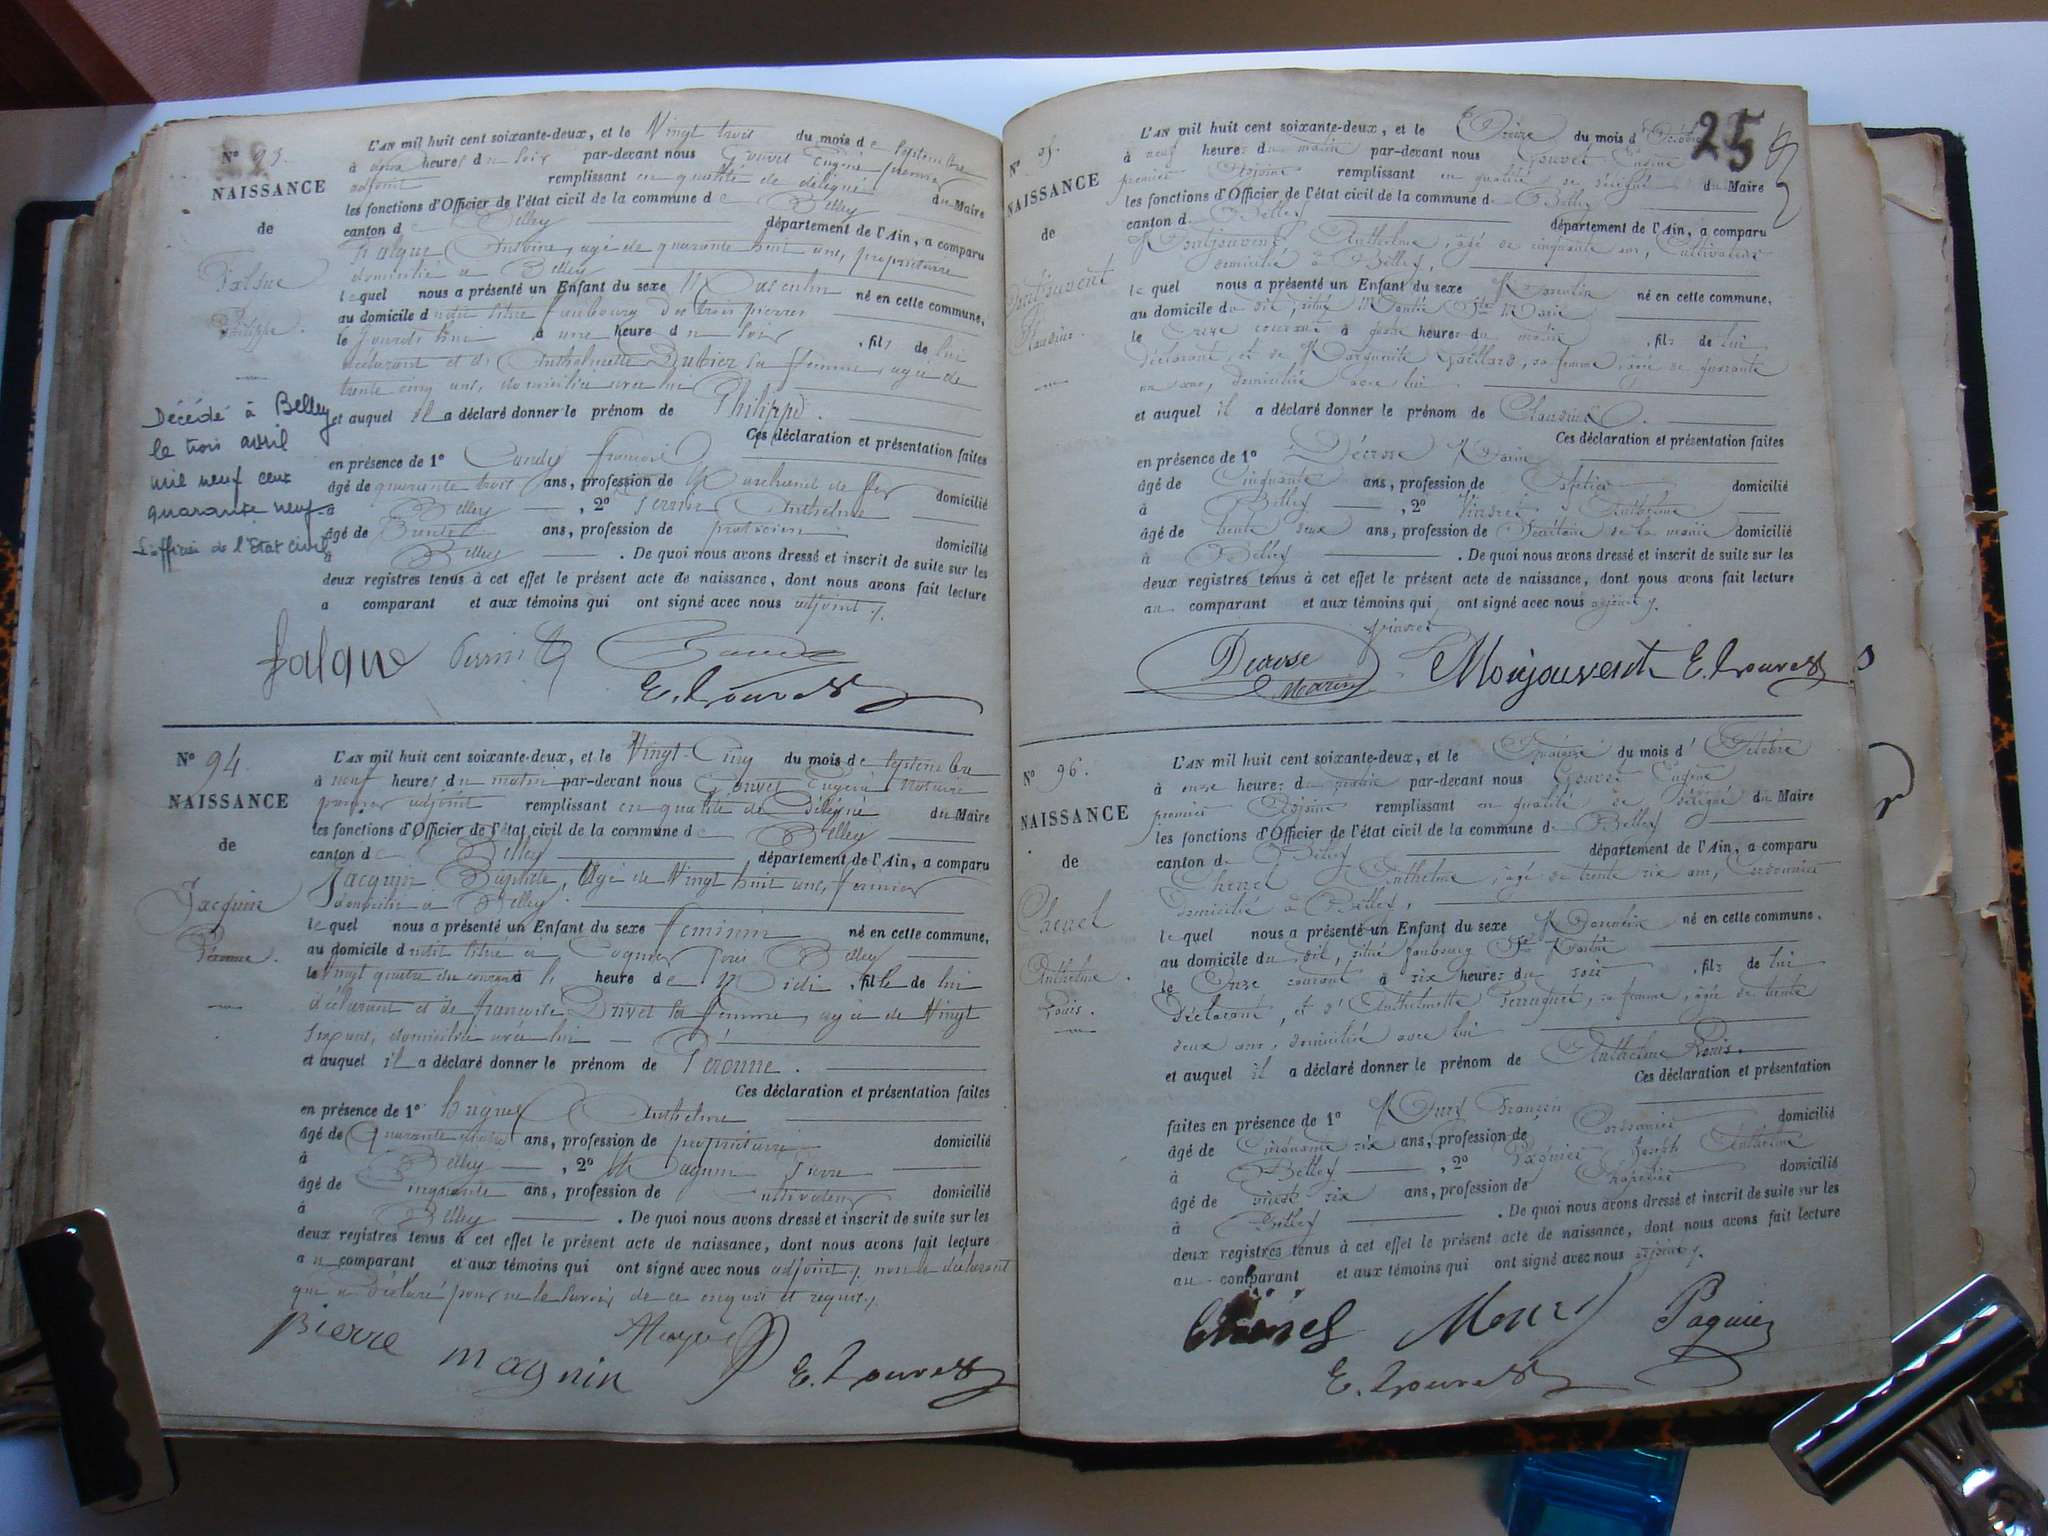 N° 93.
NAISSANCE
de
Falque
Philippe.
Décédé à Belley
le trois avril
mil neuf cent
quarante neuf
L'officier de l'Etat civil
L'AN mil huit cent soixante-deux, et le Vingt trois du mois de Septembre
à heures du soir par-devant nous Gouvet Eugène premier
adjoint remplissant en qualité de délégué du Maire
les fonctions d'Officier de l'état civil de la commune de Belley
canton de Belley département de l'Ain, a comparu
Falque Antoine, agé de quarante huit ans, propriétaire
domicilié à Belley
lequel nous a présenté un Enfant du sexe Masculin né en cette commune,
au domicile dudit situé faubourg des trois pierres
le jourd'hui à une heure du soir, fils de lui
déclarant et d'Anthelmette Dubiez sa femme, agée de
trente cinq ans, domiciliée avec lui
et auquel il a déclaré donner le prénom de Philippe.
Ces déclaration et présentation faites
en présence de 1° François
âgé de quarante trois ans, profession de Marchand de fer domicilié
à Belley, 2° Perrin Anthelme
âgé de Trente ans, profession de praticien domicilié
à Belley. De quoi nous avons dressé et inscrit de suite sur les
deux registres tenus à cet effet le présent acte de naissance, dont nous avons fait lecture
a comparant et aux témoins qui ont signé avec nous adjoint /.
falque Perrin
E. Gouvet
N° 94
NAISSANCE
de
Jacquin
Péronne.
L'AN mil huit cent soixante-deux, et le Vingt-Cinq du mois de Septembre
à neuf heures du matin par-devant nous Gouvet Eugène Notaire
premier adjoint remplissant en qualité de Délégué du Maire
les fonctions d'Officier de l'état civil de la commune de Belley
canton de Belley département de l'Ain, a comparu
Jacquin Baptiste, Agé de Vingt huit ans, fermier
domicilié à Belley
lequel nous a présenté un Enfant du sexe feminin né en cette commune,
au domicile dudit situé à Belley
le Vingt quatre du courant à heure de Midi, fille de lui
déclarant et de francoise Drivet sa femme, agée de Vingt
six ans, domiciliée avec lui
et auquel il a déclaré donner le prénom de Péronne.
Ces déclaration et présentation faites
en présence de 1° hugues Anthelme
âgé de Quarante quatre ans, profession de propriétaire domicilié
à Belley, 2° Magnin Pierre
âgé de Cinquante ans, profession de Cultivateur domicilié
à Belley. De quoi nous avons dressé et inscrit de suite sur les
deux registres tenus à cet effet le présent acte de naissance, dont nous avons fait lecture
au comparant et aux témoins qui ont signé avec nous adjoint /. non le déclarant
qui a déclaré pour ne le savoir de ce enquis et requis /.
Pierre magnin
E. Gouvet
25
N° 95.
NAISSANCE
de
Montjouvent
Claudius.
L'AN mil huit cent soixante-deux, et le Treize du mois d'Octobre
à neuf heures du matin par-devant nous Gouvet Eugène
premier Adjoint remplissant en qualité de délégué du Maire
les fonctions d'Officier de l'état civil de la commune de Belley
canton de Belley département de l'Ain, a comparu
Montjouvent Anthelme, âgé de cinquante ans, Cultivateur
domicilié à Belley,
lequel nous a présenté un Enfant du sexe Masculin né en cette commune,
au domicile du dit, situé Montée Ste Marie
le Onze courant à heures du matin, fils de lui
déclarant, et de Marguerite Gaillard, sa femme, âgée de quarante
un ans, domiciliée avec lui
et auquel il a déclaré donner le prénom de Claudius.
Ces déclaration et présentation faites
en présence de 1° Décrose Marin
âgé de Cinquante ans, profession de Cafetier domicilié
à Belley, 2° Vindret Anthelme
âgé de trente deux ans, profession de Secrétaire de la mairie domicilié
à Belley. De quoi nous avons dressé et inscrit de suite sur les
deux registres tenus à cet effet le présent acte de naissance, dont nous avons fait lecture
au comparant et aux témoins qui ont signé avec nous adjoint /.
Decrose Marin Monjouvent E. Gouvet
N° 96.
NAISSANCE
de
Chenel
Anthelme
Louis.
L'AN mil huit cent soixante-deux, et le Treize du mois d'Octobre
à onze heures du matin par-devant nous Gouvet Eugène
premier Adjoint remplissant en qualité de délégué du Maire
les fonctions d'Officier de l'état civil de la commune de Belley
canton de Belley département de l'Ain, a comparu
Chenel Anthelme, âgé de trente six ans, Cordonnier
domicilié à Belley,
lequel nous a présenté un Enfant du sexe Masculin né en cette commune,
au domicile du dit, situé faubourg St Martin
le Onze courant à six heures du soir, fils de lui
déclarant, et d'Anthelmette Perruquet, sa femme, âgée de trente
deux ans, domiciliée avec lui
et auquel il a déclaré donner le prénom de Anthelme Louis.
Ces déclaration et présentation
faites en présence de 1° Mury François
âgé de Cinquante six ans, profession de Cordonnier domicilié
à Belley, 2° Paquier Joseph Anthelme
âgé de vingt six ans, profession de Chapelier domicilié
à Belley. De quoi nous avons dressé et inscrit de suite sur les
deux registres tenus à cet effet le présent acte de naissance, dont nous avons fait lecture
au comparant et aux témoins qui ont signé avec nous adjoint /.
Chenel Mury Paquier
E. Gouvet